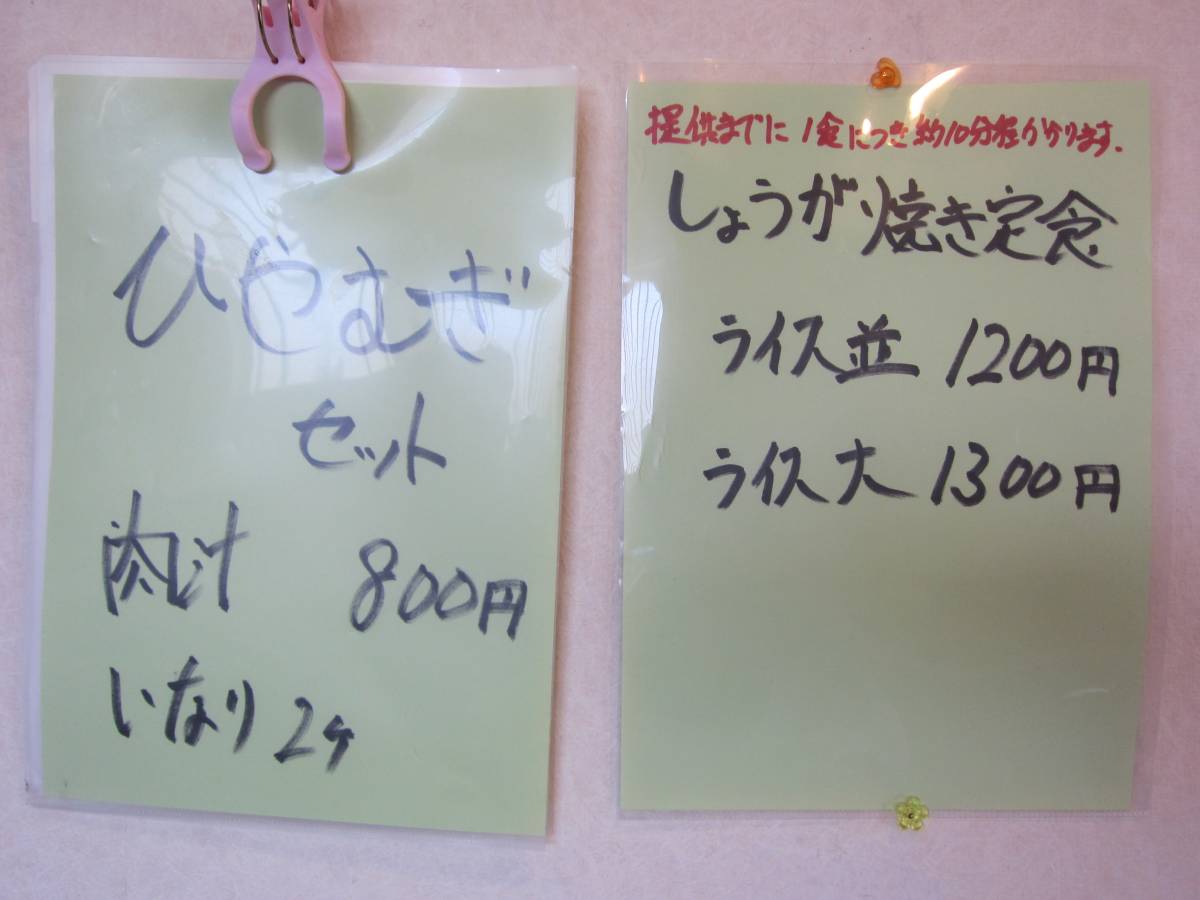 ひやむぎ
セット
肉汁 800円
いなり 2ケ
提供までに 1食につき約10分程かかります.
しょうが焼き定食
ライス並 1200円
ライス大 1300円